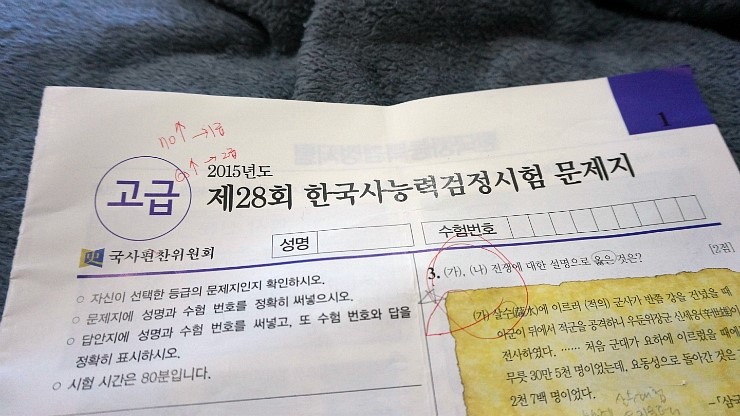 70↑ → 1급
60↑ → 2급
1
고급
2015년도
제28회 한국사능력검정시험 문제지
성명
수험번호
국사편찬위원회
○ 자신이 선택한 등급의 문제지인지 확인하시오.
○ 문제지에 성명과 수험 번호를 정확히 써넣으시오.
○ 답안지에 성명과 수험 번호를 써넣고, 또 수험 번호와 답을
정확히 표시하시오.
○ 시험 시간은 80분입니다.
3. (가), (나) 전쟁에 대한 설명으로 옳은 것은? [2점]
(가) 살수(薩水)에 이르러 (적의) 군사가 반쯤 강을 건넜을 때
아군이 뒤에서 적군을 공격하니 우둔위장군 신세웅(辛世雄)이
전사하였다. …… 처음 군대가 요하에 이르렀을 때에
무릇 30만 5천 명이었는데, 요동성으로 돌아간 것은
2천 7백 명이었다.
-「삼국